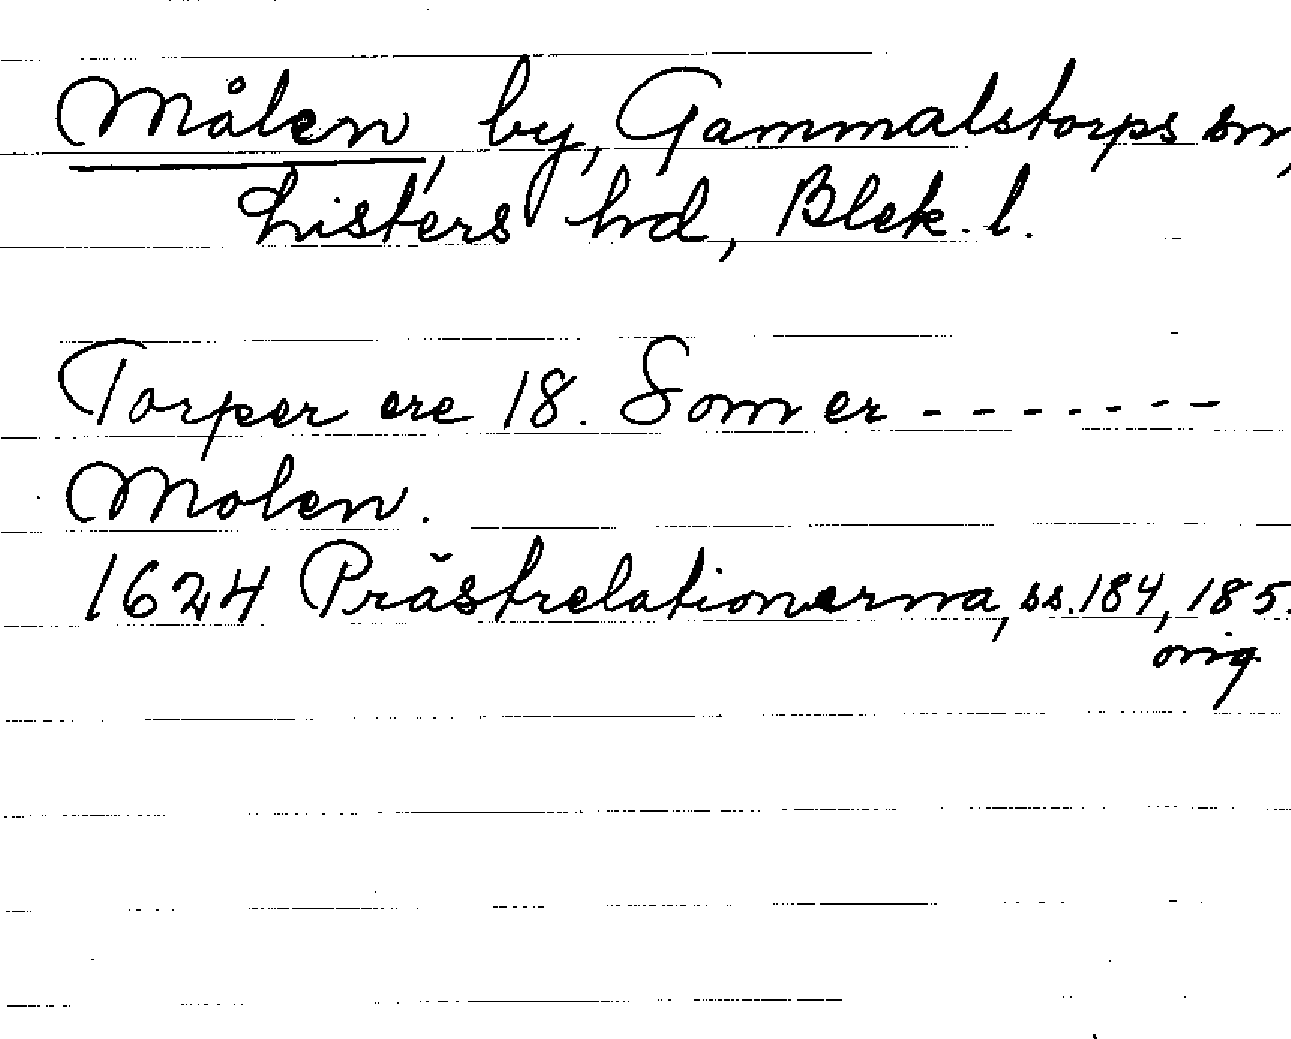 Målen, by, Gammalstorps sn,
Listers hd, Blek. l.
Torper ere 18. Som er - - - - - - -
Molen.
1624 Prästrelationerna, ss. 184, 185.
orig